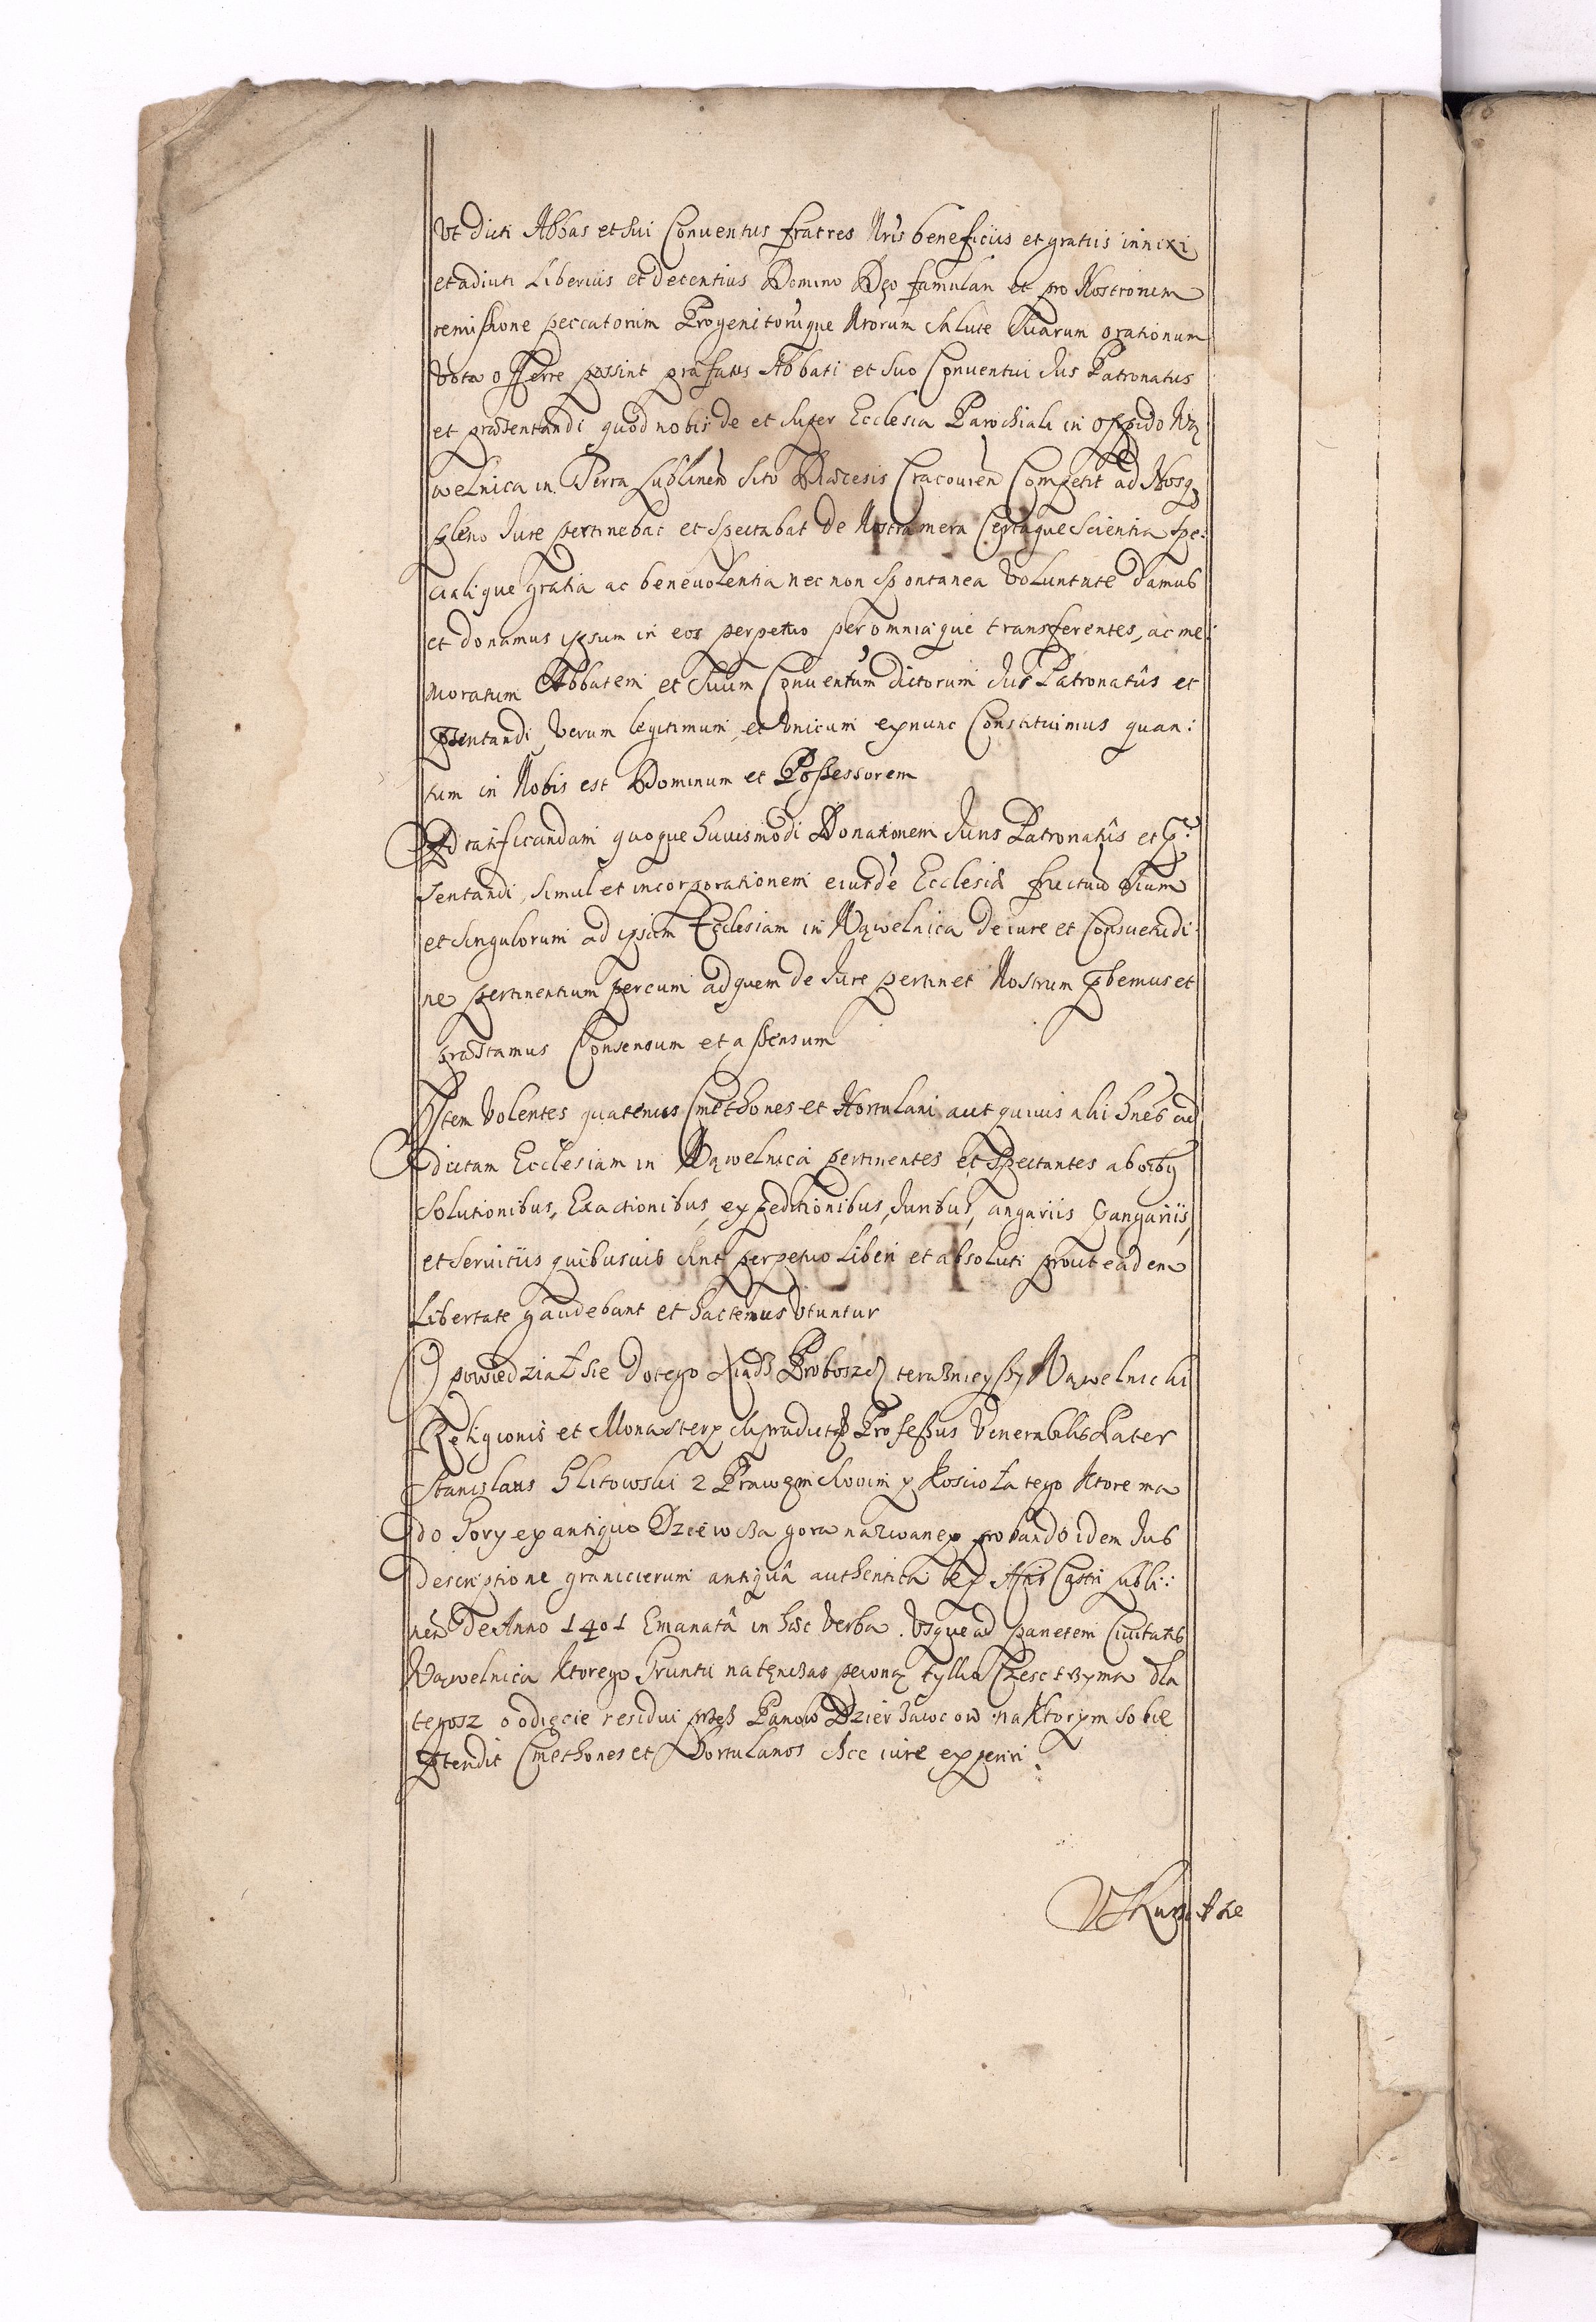 Vt dicti Abbas et Sui Conuentus fratres Nris beneficiis et gratiis innixi
et adiuti Liberius et decentius Domino Deo famulari et pro Nostrorum
remissione peccatorum Progenitorúque Nrorum Salute Suarum orationum
Vota offerre possint præfatis Abbati et Suo Conuentui Jus Patronatus
et præsentandi quod nobis de et super Ecclesia Parochiali in oppido Wą
welnica in Terra Lublinen Sito Diæcesis Cracouien Competit ad Nosq
pleno Jure pertinebat et Spectabat de Nostra mera Certaque Scientia Spe:
cialique gratia ac beneuolentia nec non Spontanea Voluntate damus
et donamus ipsum in eos perpetuo per omniaque transferentes, ac me:
moratum Abbatem et Suum Conuentum dictorum Jus Patronatûs et
Psentandi Verum legitimum, et Vnicum exnunc Constituimus quan:
tum in Nobis est Dominum et Possessorem
Ad ratificandam quoque huiusmodi Donationem Juris Patronatûs et P:
sentandi, Simul et incorporationem eiusdé Ecclesiæ fructuu oium
et Singulorum ad ipsam Ecclesiam in Wąwelnica de iure et Consuetudi
ne pertinentium per eum ad quem de Jure pertinet Nostrum Pbemus et
præstamus Consensum et assensum
Item Volentes quatenus Cmethones et Hortulani aut quiuis alii hnes ad
dictam Ecclesiam in Wąwelnica pertinentes et Spectantes ab oibq
Solutionibus, Exactionibus, expeditionibus, Juribus, angariis Pangariis,
et Seruitiis quibusuis Sint perpetuo Liberi et absoluti prout eadem
Libertate gaudebant et hactenus Vtuntur
Opowiedział sie do tego Xiądz Proboszcz teraznieyszy Wąwelnicki
Religionis et Monastery Supradicti Professus Venerabilis Pater
Stanislaus Slitowski z Prawem Swoim y Koscioła tego Ktore ma
do Gory ex antiquo Dziewcza gora nazwaney probando idem Jus
descriptione granicierum antiquâ authentica ex Actis Castri Lubli:
nen De Anno 1401 Emanatâ in hæc Verba. Vsque ad parietem Ciuitatis
Wąwelnica Ktorego Gruntu natenczas pewną tylko Częsc trzyma dla
tegosz o odięcie residui przez Panow Dzierzawcow na Ktorym sobie
Ptendit Cmethones et Hortulanos Se iure experiri